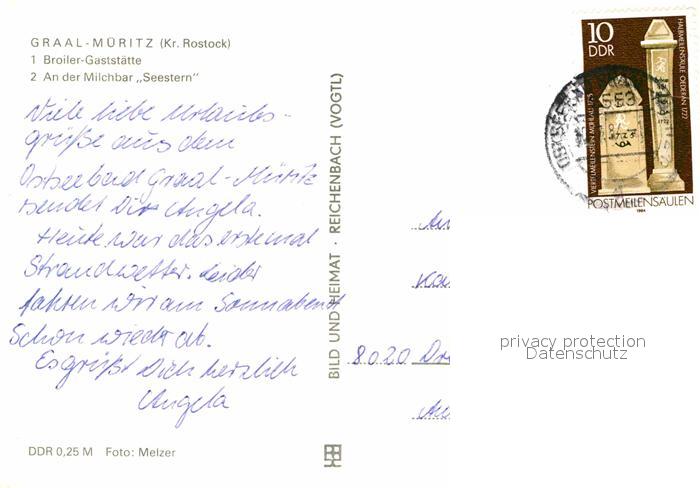 GRAAL-MÜRITZ (Kr. Rostock)
1 Broiler-Gaststätte
2 An der Milchbar „Seestern"
Viele liebe Urlaubs-
grüße aus dem
Ostseebad Graal-Müritz
sendet Dir Angela.
Heute war das erstemal
Strandwetter. Leider
fahren wir am Sonnabend
schon wieder ab.
Es grüßt Dich herzlich
Angela
DDR 0,25 M Foto: Melzer
BILD UND HEIMAT · REICHENBACH (VOGTL)
10
DDR
VIERTELMEILENSTEIN MÜHLAU 1725
HALBMEILENSÄULE OEDERAN 1722
POSTMEILENSÄULEN
1984
8020 Dr
privacy protection
Datenschutz